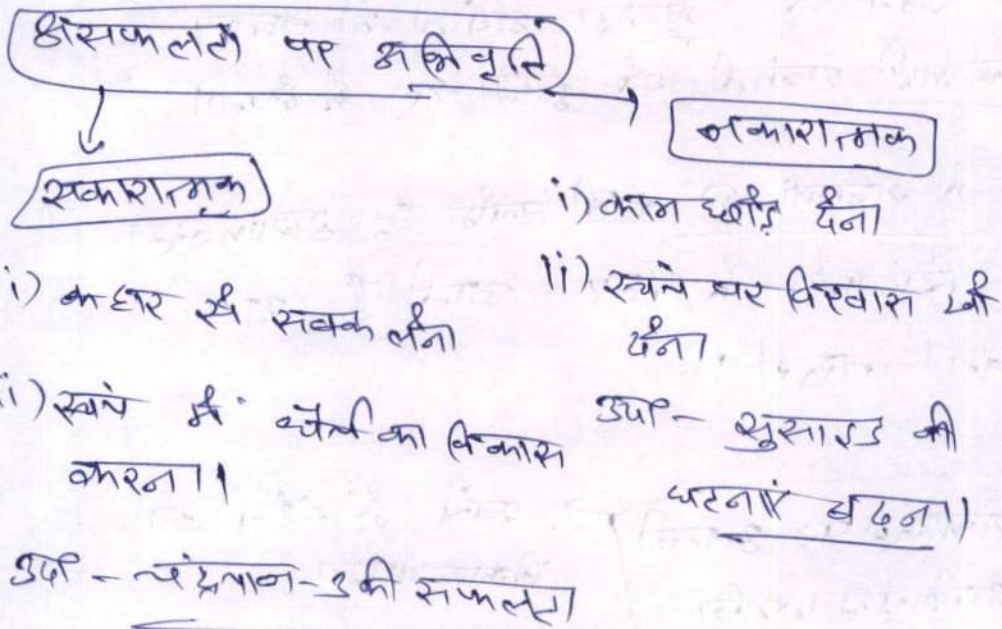 असफलता पर अभिवृत्ति
सकारात्मक
i) हार से सबक लेना
ii) स्वयं में धैर्य का विकास
करना।
उदा०- चंद्रयान-3 की सफलता
नकारात्मक
i) काम छोड़ देना
ii) स्वयं पर विश्वास खो
देना
उदा०- सुसाइड की
घटनाएं बढ़ना।